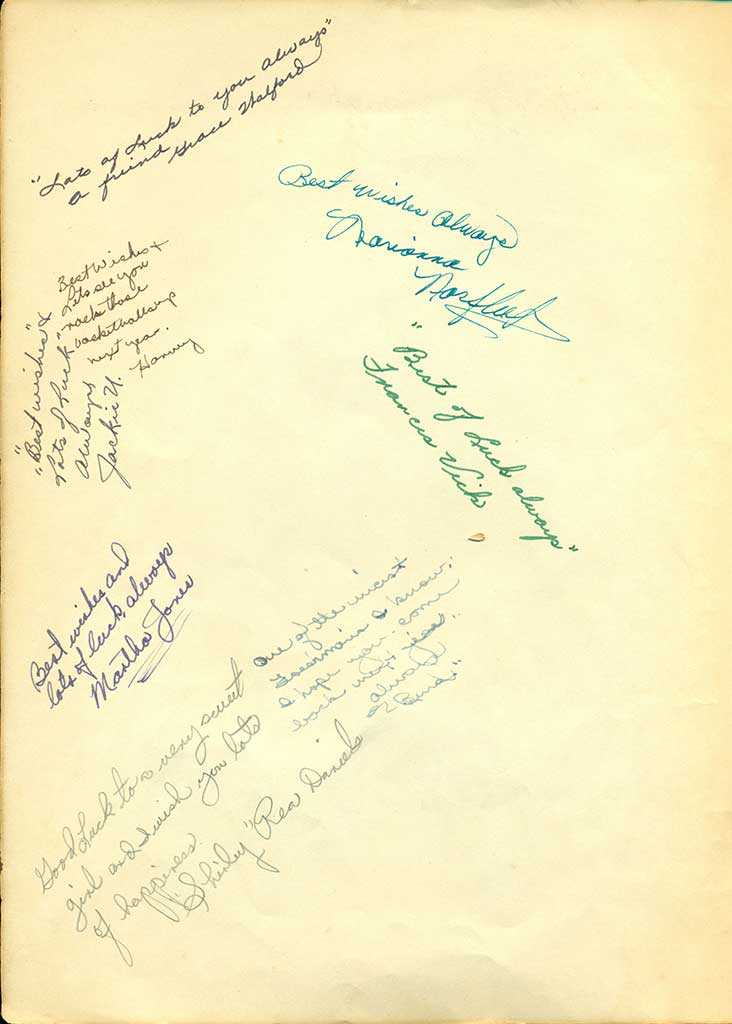 "Lots of Luck to you always"
a friend
Grace Walford
Best wishes always
Marianna
Norfleet
Best Wishes +
Lets see you
"rack those
basketballs up
next year.
Harvey
"Best wishes" &
Lots of Luck"
always
Jackie U.
"Best of Luck always"
Frances Vick
Best wishes and
lots of luck, always
Martha Jones
One of the nicest
I know,
I hope you come
back next year.
always
Good Luck to a very sweet
girl and I wish you lots
of happiness.
"Shirley" Rea Daniels